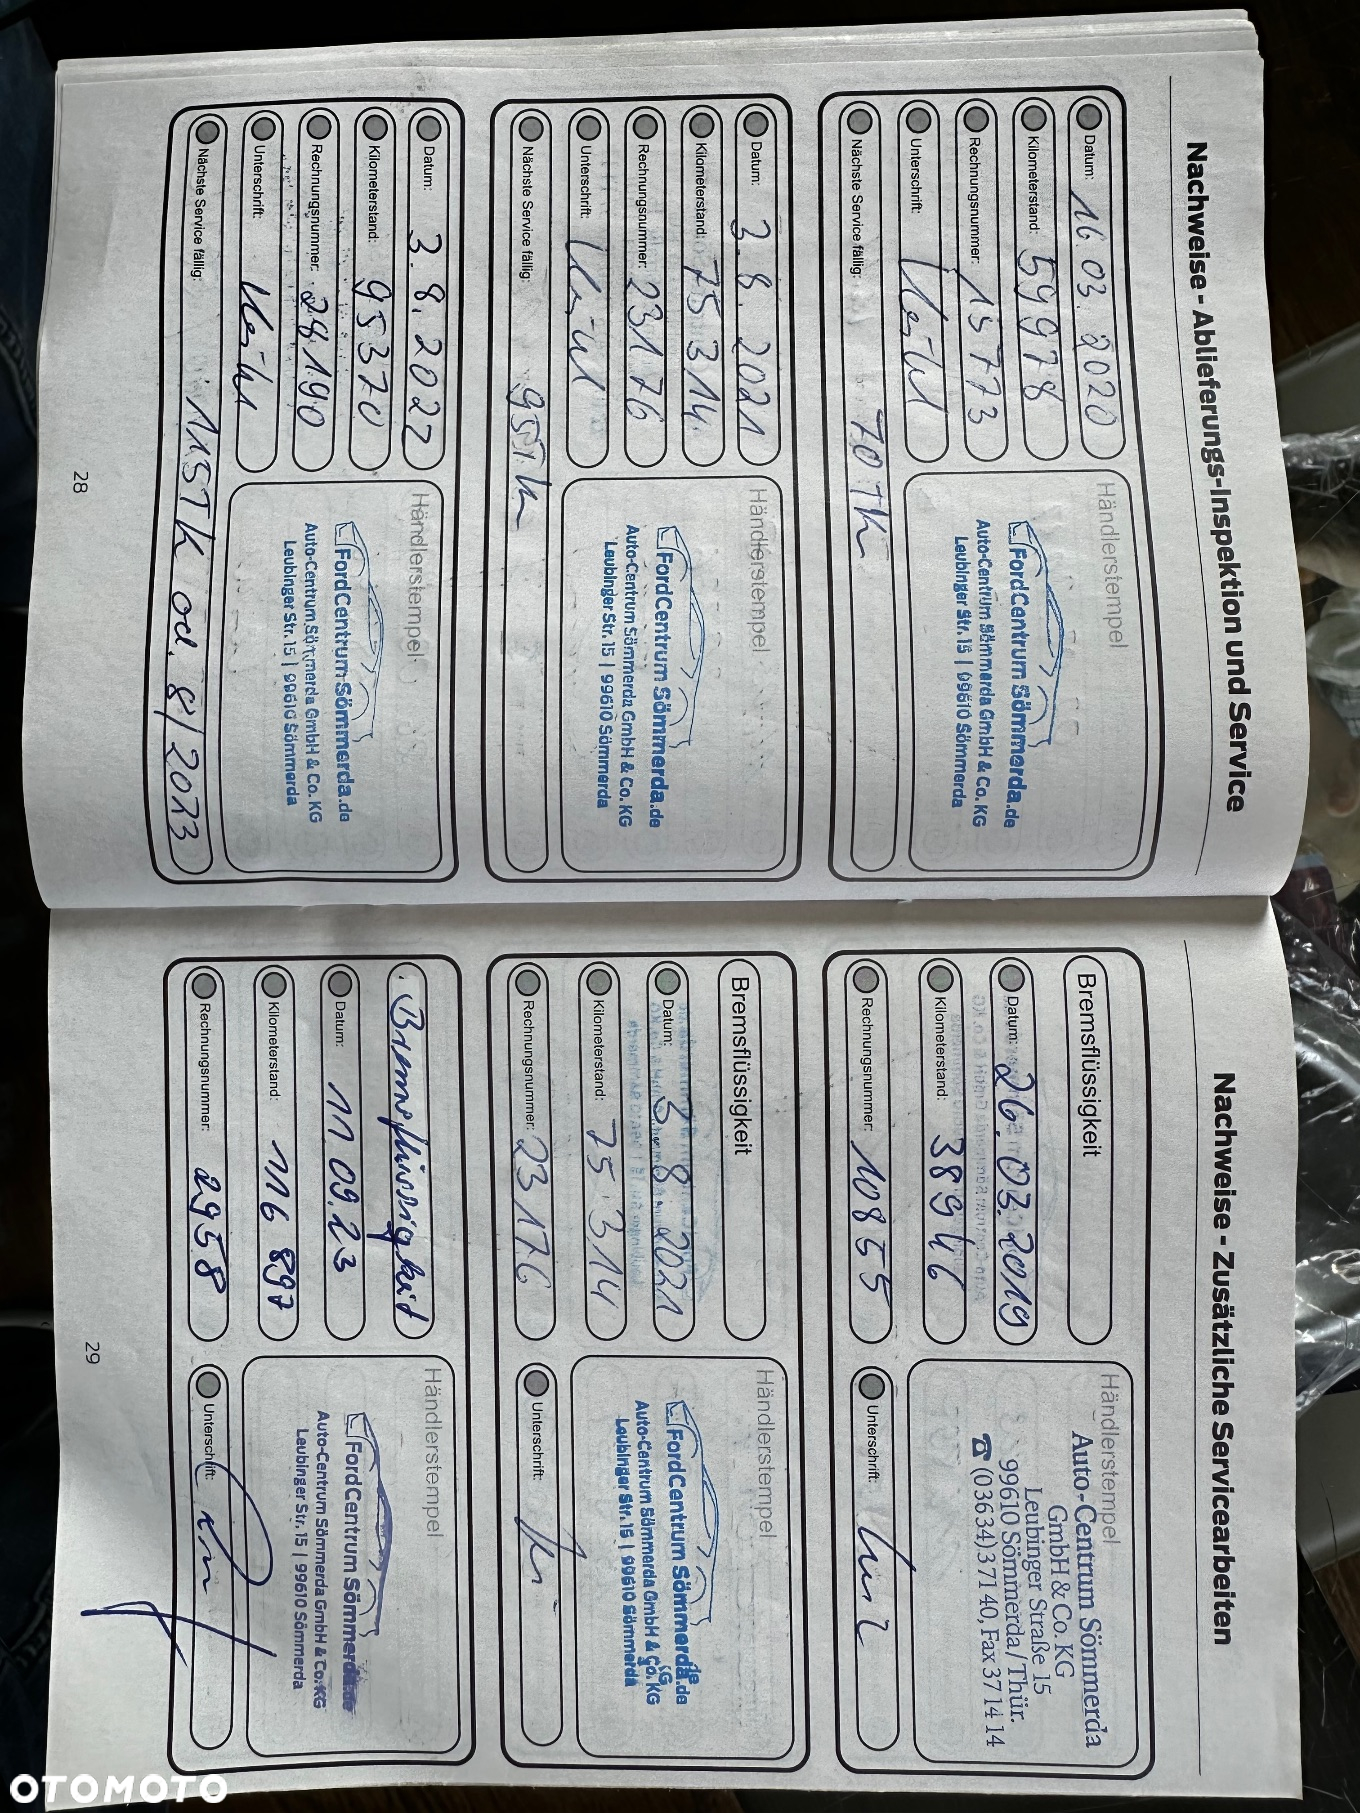 Nachweise - Ablieferungs-Inspektion und Service
Datum: 16.03.2020
Kilometerstand: 59978
Rechnungsnummer: 15773
Unterschrift:
Nächste Service fällig: 70 TK
Händlerstempel
FordCentrum Sömmerda.de
Auto-Centrum Sömmerda GmbH & Co. KG
Leubinger Str. 15 | 99610 Sömmerda
Datum: 3.8.2021
Kilometerstand: 75314
Rechnungsnummer: 23176
Unterschrift:
Nächste Service fällig: 95 Tk
Händlerstempel
FordCentrum Sömmerda.de
Auto-Centrum Sömmerda GmbH & Co. KG
Leubinger Str. 15 | 99610 Sömmerda
Datum: 3.8.2022
Kilometerstand: 95370
Rechnungsnummer: 28190
Unterschrift:
Nächste Service fällig: 115TK od. 8/2023
Händlerstempel
FordCentrum Sömmerda.de
Auto-Centrum Sömmerda GmbH & Co. KG
Leubinger Str. 15 | 99610 Sömmerda
28
Nachweise - Zusätzliche Servicearbeiten
Bremsflüssigkeit
Datum: 26.03.2019
Kilometerstand: 38946
Rechnungsnummer: 10855
Unterschrift:
Händlerstempel
Auto-Centrum Sömmerda
GmbH & Co. KG
Leubinger Straße 15
99610 Sömmerda/Thür.
☎ (03634) 37140, Fax 371414
Bremsflüssigkeit
Datum: 3.8.2021
Kilometerstand: 75314
Rechnungsnummer: 23176
Unterschrift:
Händlerstempel
FordCentrum Sömmerda.de
Auto-Centrum Sömmerda GmbH & Co. KG
Leubinger Str. 15 | 99610 Sömmerda
Bremsflüssigkeit
Datum: 11.09.23
Kilometerstand: 116 897
Rechnungsnummer: 2958
Unterschrift:
Händlerstempel
FordCentrum Sömmerda.de
Auto-Centrum Sömmerda GmbH & Co. KG
Leubinger Str. 15 | 99610 Sömmerda
29
OTOMOTO